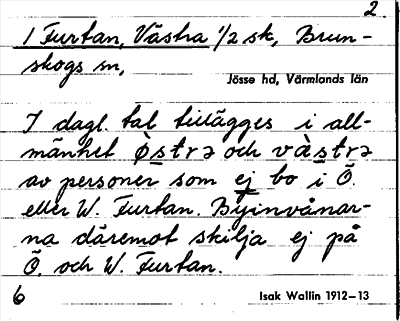 2.
1 Furtan, Västra 1/2 sk, Brun-
skogs sn,
Jösse hd, Värmlands län
I dagl. tal tillägges i all-
mänhet østrə och vàstrə
av personer som ej bo i Ö.
eller W. Furtan. Byinvånar-
na däremot skilja ej på
Ö. och W. Furtan.
6
Isak Wallin 1912-13